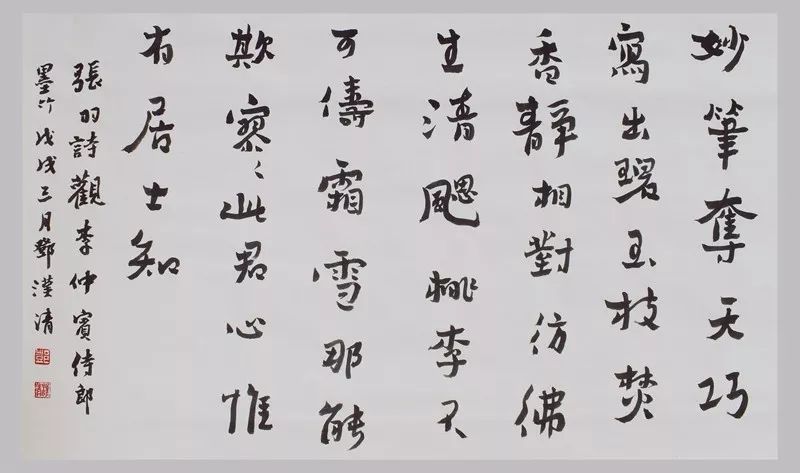 妙筆奪天巧
寫出碧玉枝焚
香靜相對彷彿
生清颸桃李不
可儔霜雪那能
欺寥〻此君心惟
有居士知
張羽詩觀李仲賓侍郎
墨竹戊戌三月鄧漢清